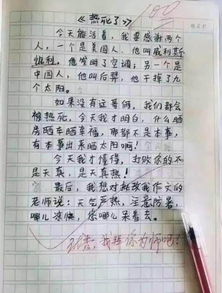 《热死了》
今天能活着，我要感谢两
个人，一个是美国人，他叫威利斯
他发明了空调；另一个是
中国人，他叫后羿，他干掉了九
个太阳。
如果没有这哥俩，我们都会
被热死，今天我才明白，什么晒
房晒车晒幸福，那都不是本事，
有本事出来晒太阳啊！
今天我才懂得，打败你的不
是天真，是天真热！
最后，我想对批改我作文的
老师说：天气炎热，注意防暑，
哪儿凉快，您哪儿呆着去。
我拜你为师吧！